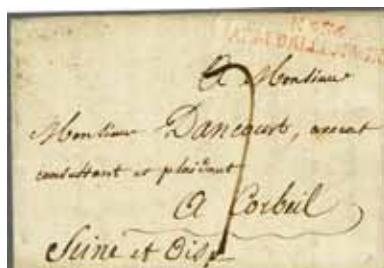 A Monsieur
Monsieur Dancourt, avocat
consultant et plaidant
A Corbeil
Seine et Oise